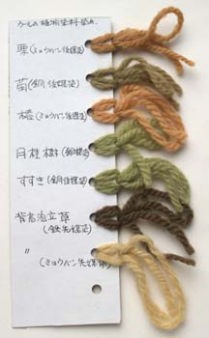 ウールの植物染料染め
栗(ミョウバン後媒染)
菊(銅後媒染)
橙(ミョウバン後媒染)
月桂樹(銅後媒染)
すすき(銅後媒染)
背高泡立草
(鉄先媒染)
〃
(ミョウバン先媒染)